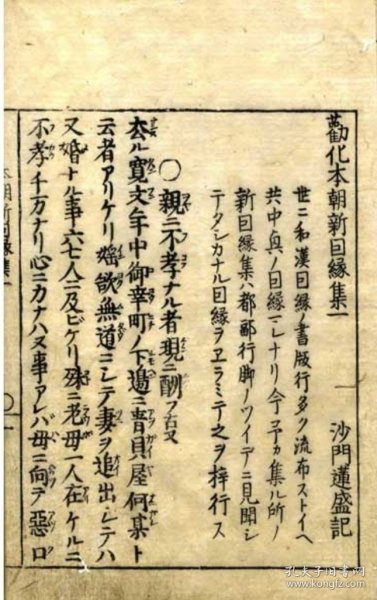 勸化本朝新因縁集一
沙門蓮盛記
世ニ和漢因縁ノ書版行多ク流布ストイヘ
共中真ノ因縁マレナリ今予カ集ル所ノ
新因縁集ハ都鄙行脚ノツイデニ見聞シ
テタシカナル因縁ヲヱラミテ之ヲ梓行ス
〇親ニ不孝ナル者現ニ酬フ
去ル寛文年中御幸町ノ下邊ニ音貝屋何某ト
云者アリケリ婬欲無道ニシテ妻ヲ追出シテハ
又婚ナル事六七人ニ及ビケリ殊ニ老母一人在ケルニ
不孝千万ナリ心ニカナハヌ事アレバ母ニ向テ惡口
本朝新因縁集一
孔夫子旧书网